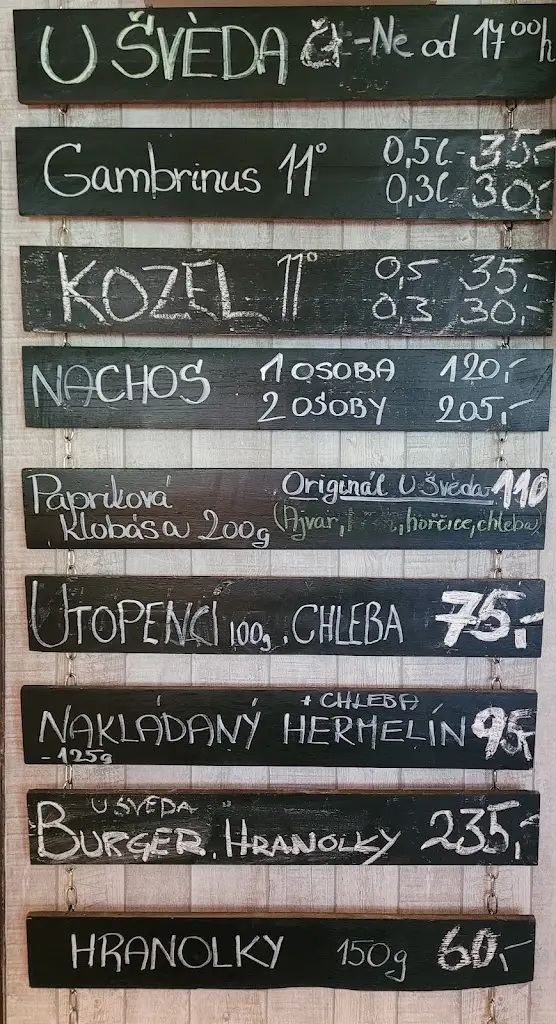 U ŠVÈDA Čt-Ne od 17⁰⁰h
Gambrinus 11° 0,5l.- 35,-
0,3l - 30,-
KOZEL 11° 0,5 35,-
0,3 30,-
NACHOS 1 OSOBA 120,-
2 OSOBY 205,-
Papriková Originál U Švéda 110
klobása 200g (Ajvar, , hořčice, chleba)
UTOPENCI 100g, CHLEBA 75,-
+ CHLEBA
NAKLÁDANÝ HERMELÍN 95,-
- 125g
U ŠVÉDA
BURGER, HRANOLKY 235,-
HRANOLKY 150g 60,-